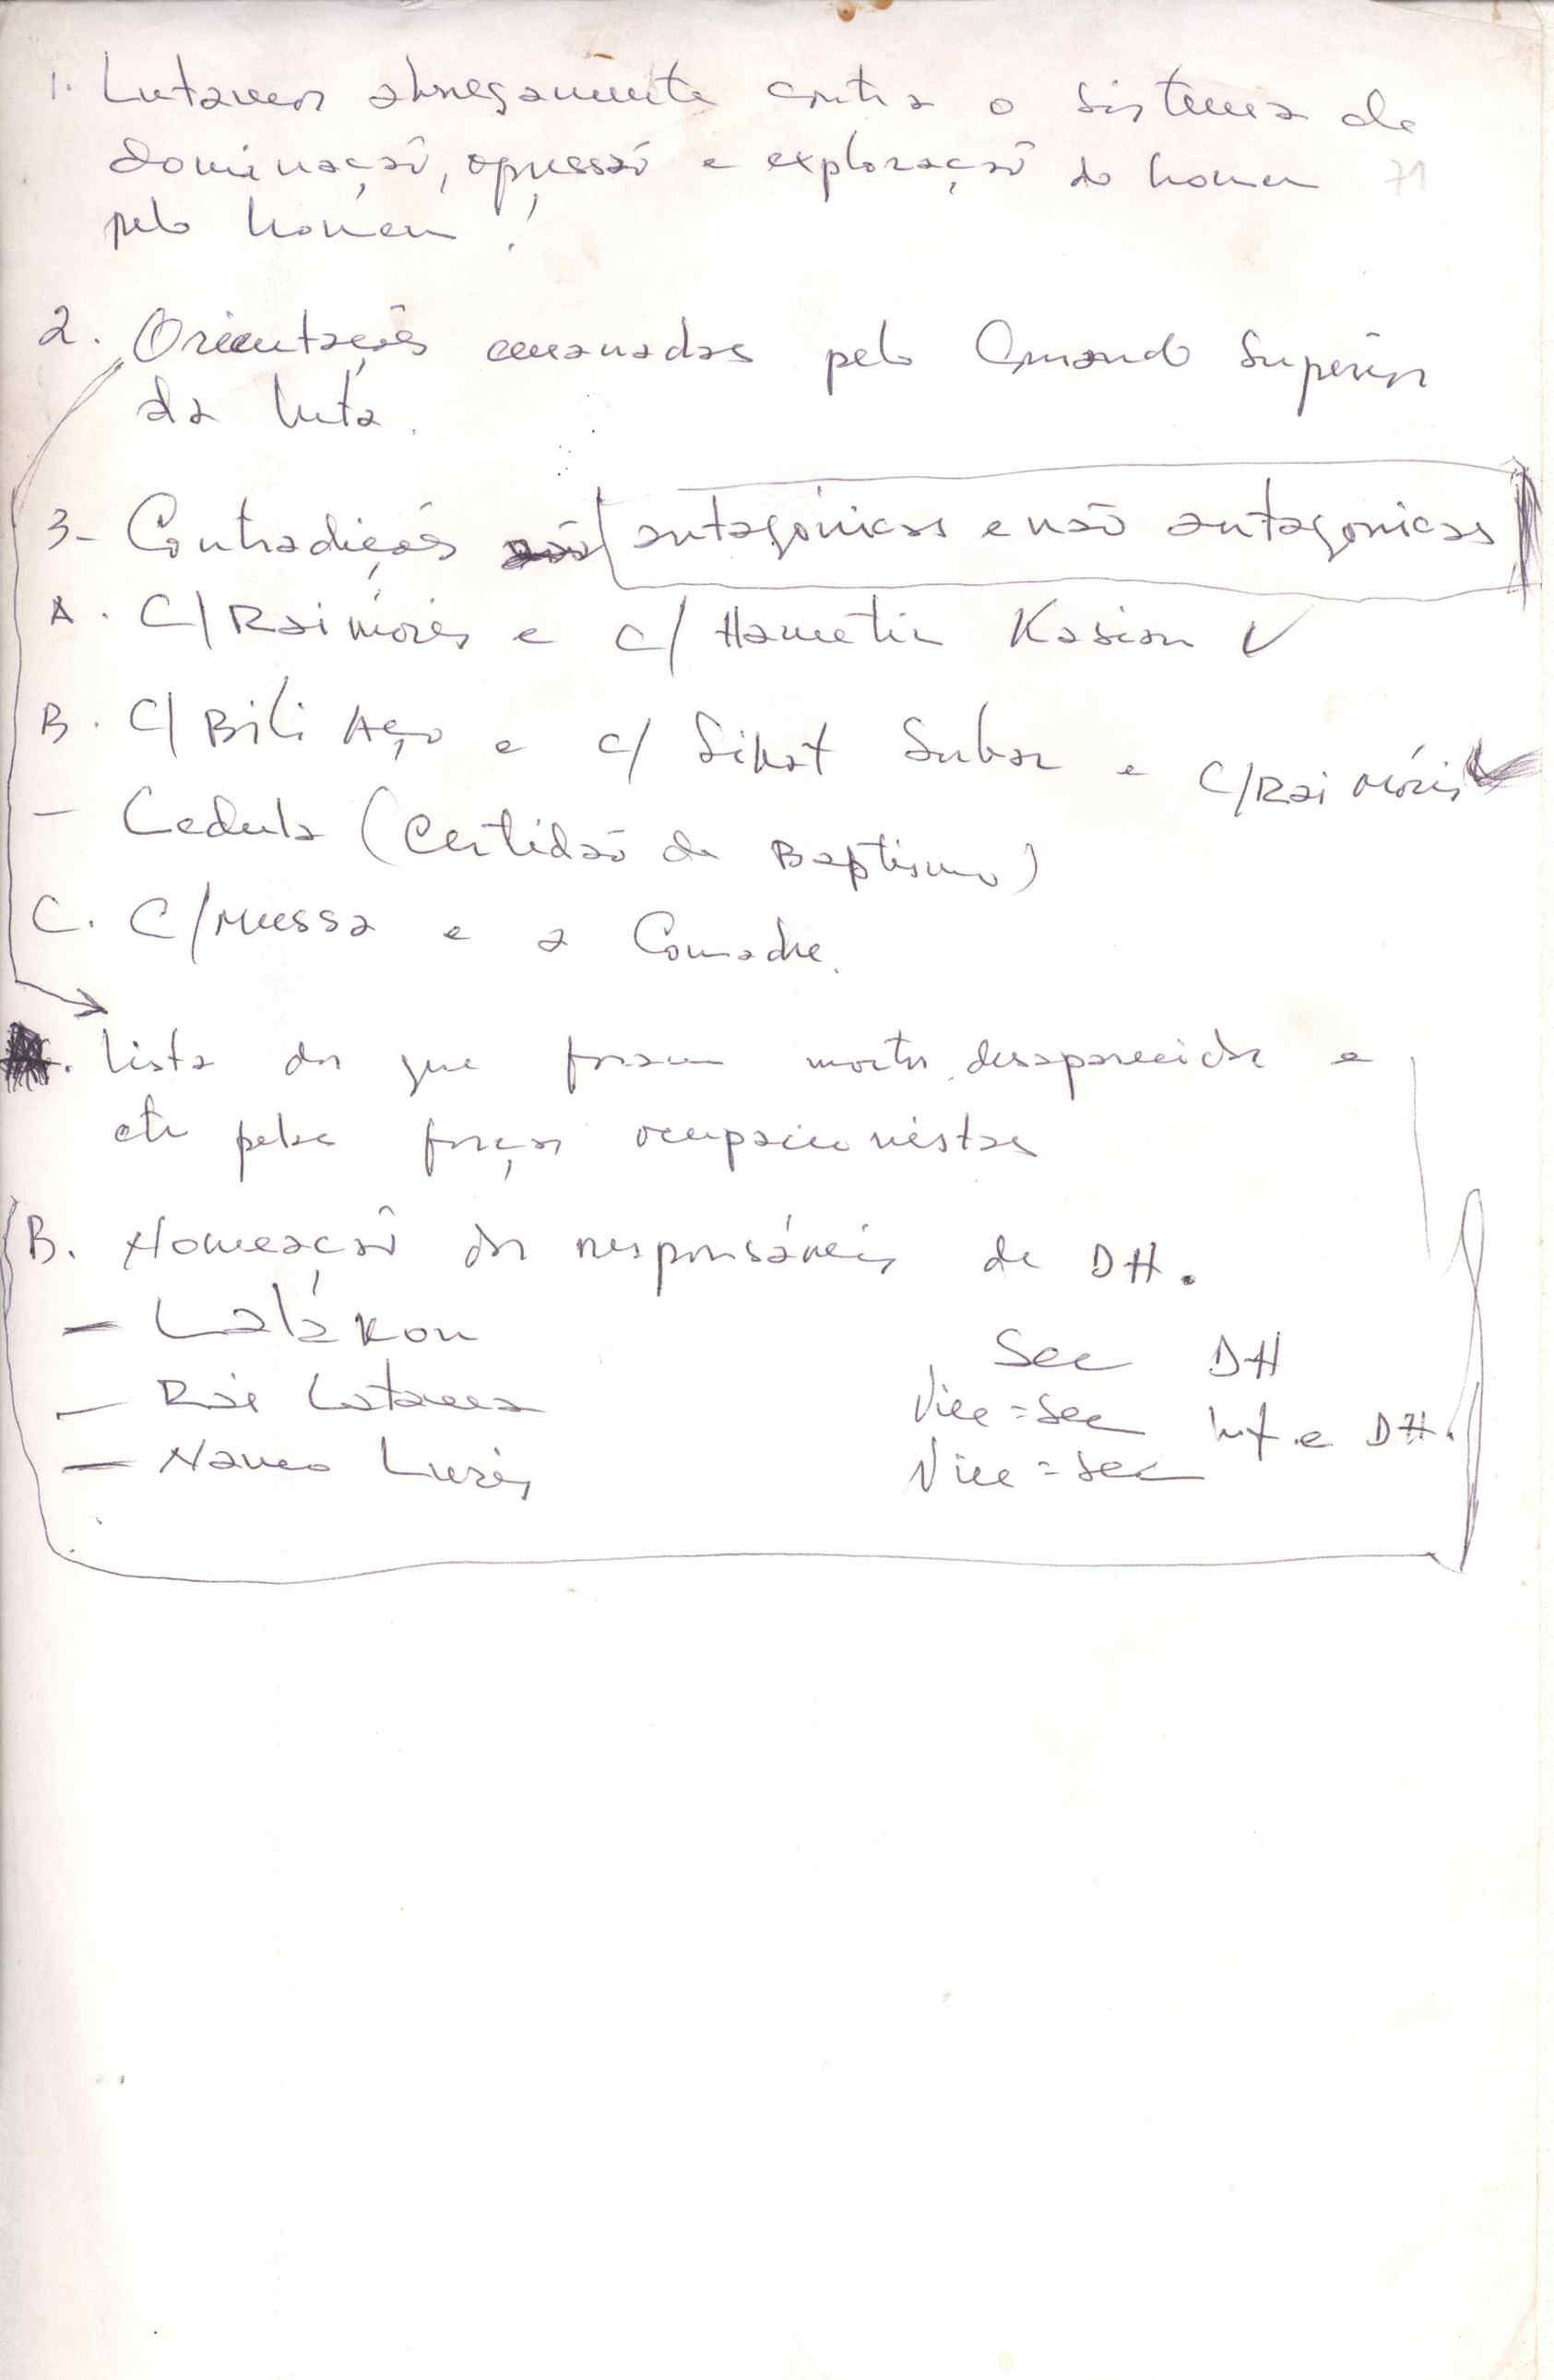 1. Lutamos abnegamente contra o sistema de
dominação, opressão e exploração do homem 71
pelo homem!
2. Orientações emanadas pelo Comando Superior
da luta.
3- Contradições antagónicas e não antagonicas
A. C/Rai móris e C/ Hametin Kasian
B. C/ Bili Aço e C/ Sikat Subar e C/Rai móris
- Cedula (Certidão de Baptismo)
C. C/Mussa e a Comadre.
lista dos que foram mortos, desaparecidos e
etc pelas forças ocupacionistas
B. Nomeação dos responsáveis de DH.
- Lalákon Sec DH
- Rai Latama Vice=Sec Inf. e DH.
- Nameo Lurés Vice=sec